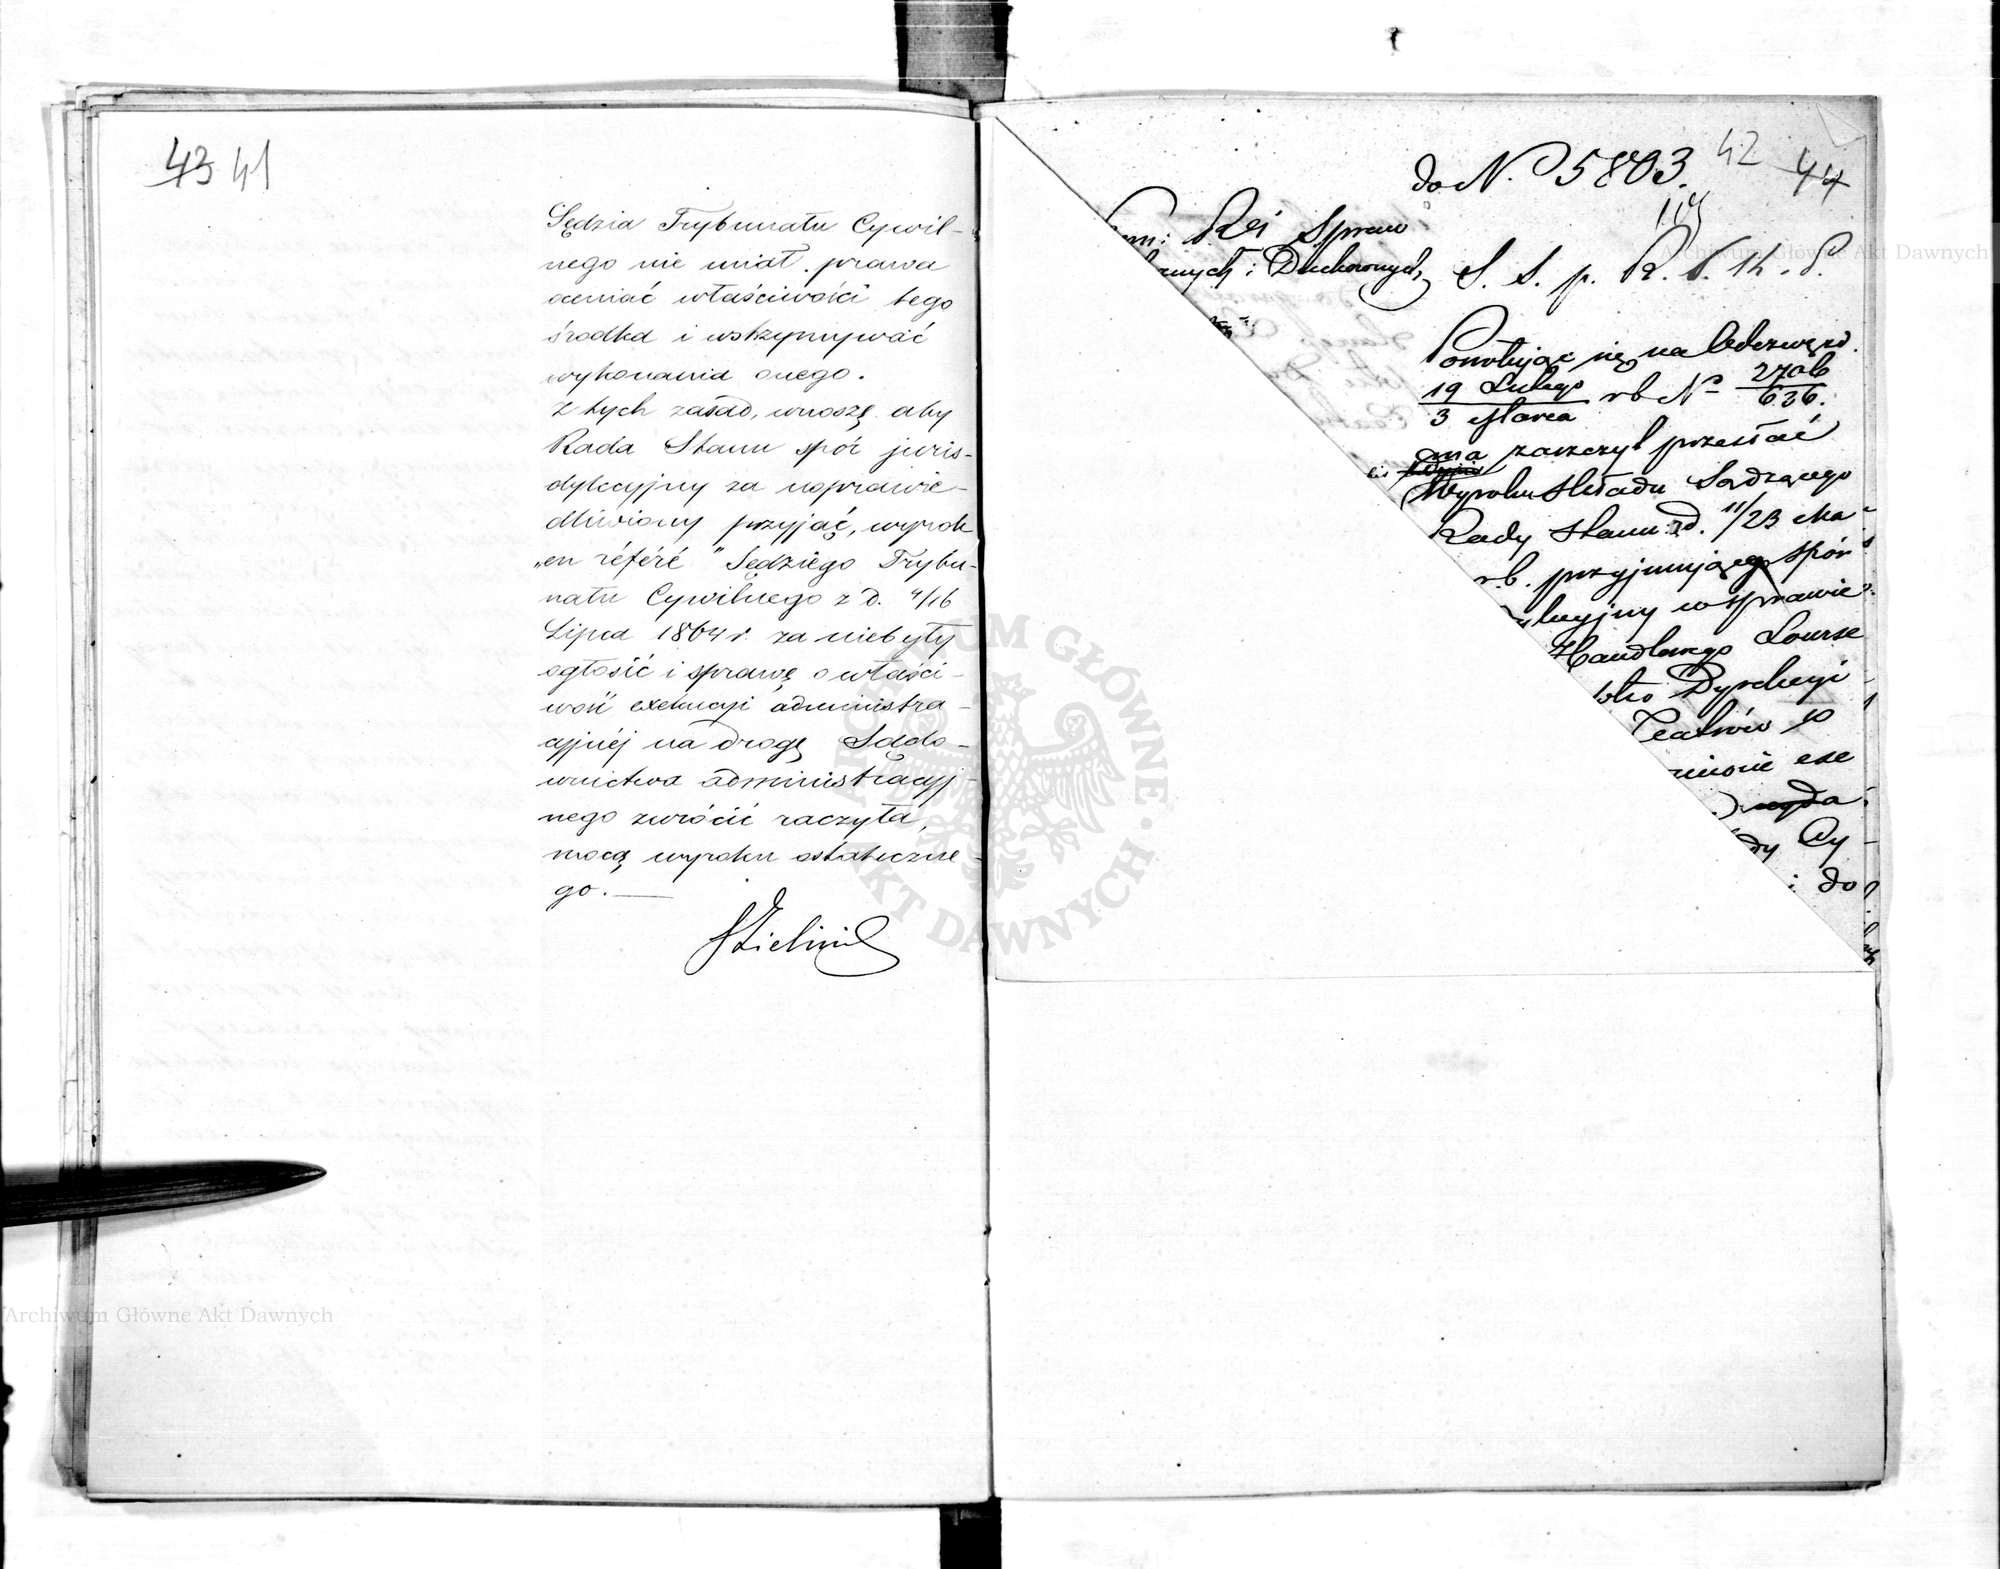 43 41
Sędzia Trybunatu Cywil-
nego nie miał prawa
oceniać właściwości tego
środka i wstrzymywać
wykonania onego.
Z tych zasad, wnoszę aby
Rada Stanu spór juris-
dykcyjny za usprawie-
dliwiony przyjąć, wyrok
„en référé" Sędziego Trybu-
natu Cywilnego z d. 4/16
Lipca 1864 r. za niebyły
ogłosić i sprawę o właści-
wość exekucyi administra-
cyjnéj na drogę Sądo-
wnictwa administracyj-
nego zwrócić raczyła,
mocą wyroku ostateczne-
go.
do N. 5803. 42 44
Kom: Rei Spraw
i Duchownych, S. S. p.
Powołując się na Odezwę z d.
19 Lutego
3 Marca rb No 2706
636.
ma zaszczyt przesłać
Wyroku Składu Sądzącego
Rady Stanu z d. 11/23 Ma-
r.b. przyjmującego spór
kcyjny w sprawie
Handlowego Lourse
wko Dyrekcyi
Teatrów o
exe
dy Cy-
i do
Archiwum Główne Akt Dawnych
Archiwum Główne Akt Dawnych
ARCHIWUM GŁÓWNE AKT DAWNYCH